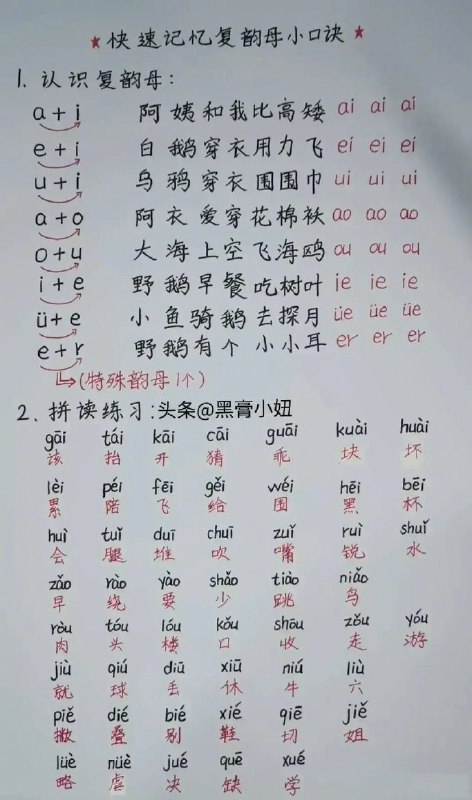 ★快速记忆复韵母小口诀★
1. 认识复韵母:
a + i 阿姨和我比高矮 ai ai ai
e + i 白鹅穿衣用力飞 ei ei ei
u + i 乌鸦穿衣围围巾 ui ui ui
a + o 阿衣爱穿花棉袄 ao ao ao
o + u 大海上空飞海鸥 ou ou ou
i + e 野鹅早餐吃树叶 ie ie ie
ü + e 小鱼骑鹅去探月 üe üe üe
e + r 野鹅有个小小耳 er er er
(特殊韵母1个)
2. 拼读练习:头条@黑膏小妞
gāi tái kāi cāi guāi kuài huài
该 抬 开 猜 乖 块 坏
lèi péi fēi gěi wéi hēi bēi
累 陪 飞 给 围 黑 杯
huì tuǐ duī chuī zuǐ ruì shuǐ
会 腿 堆 吹 嘴 锐 水
zǎo rào yào shǎo tiào niǎo
早 绕 要 少 跳 鸟
ròu tóu lóu kǒu shōu zǒu yóu
肉 头 楼 口 收 走 游
jiù qiú diū xiū niú liù
就 球 丢 休 牛 六
piě dié bié xié qiē jiě
撇 叠 别 鞋 切 姐
lüè nüè jué quē xué
略 虐 决 缺 学